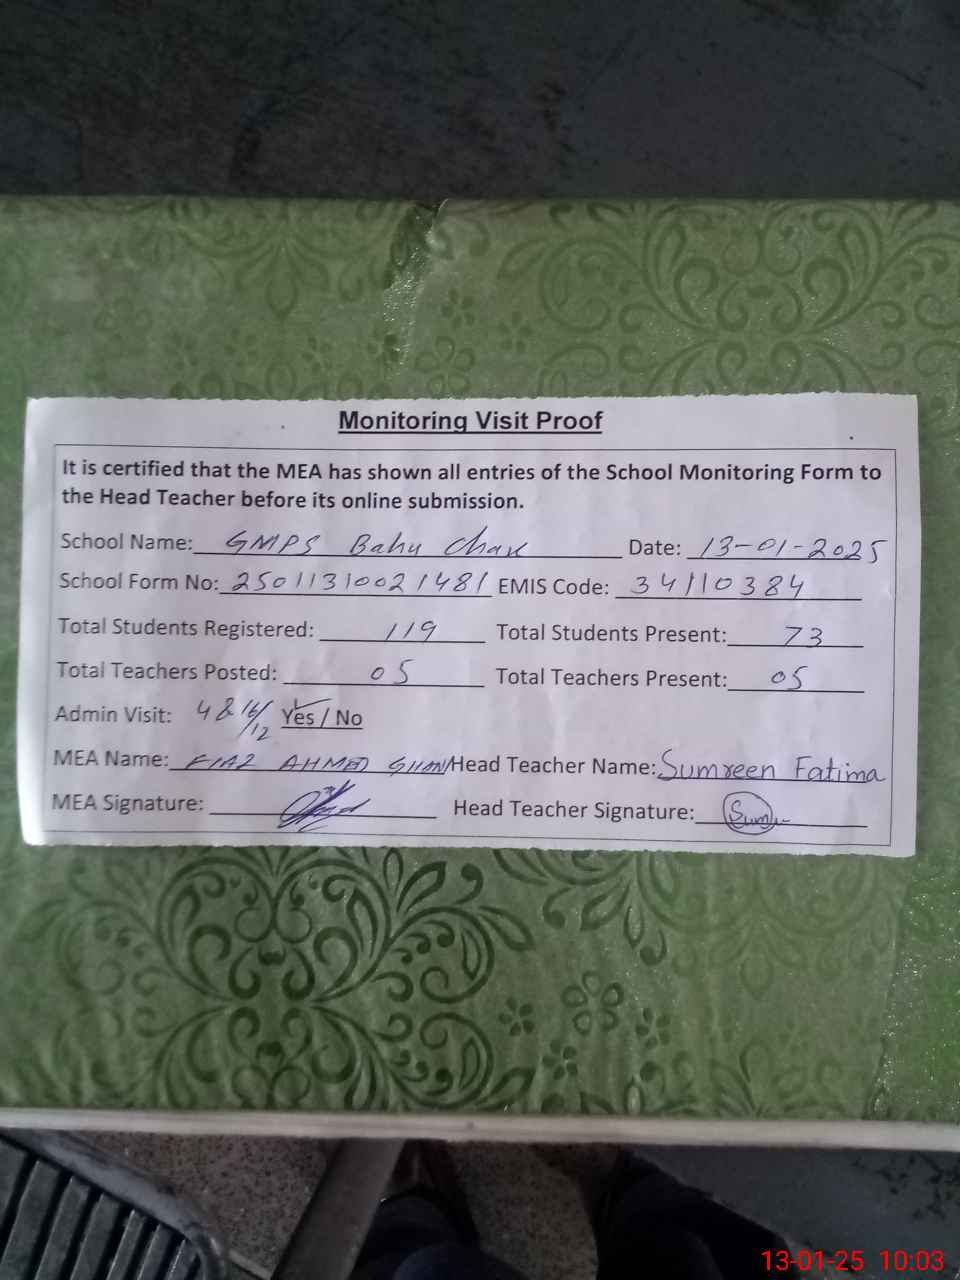 Monitoring Visit Proof
It is certified that the MEA has shown all entries of the School Monitoring Form to
the Head Teacher before its online submission.
School Name: GMPS Bahu Chak Date: 13-01-2025
School Form No: 25011310021481 EMIS Code: 34110384
Total Students Registered: 119 Total Students Present: 73
Total Teachers Posted: 05 Total Teachers Present: 05
Admin Visit: 4 & 16/12 Yes / No
MEA Name: FIAZ AHMED Head Teacher Name: Sumreen Fatima
MEA Signature: Head Teacher Signature: Sum
13-01-25 10:03